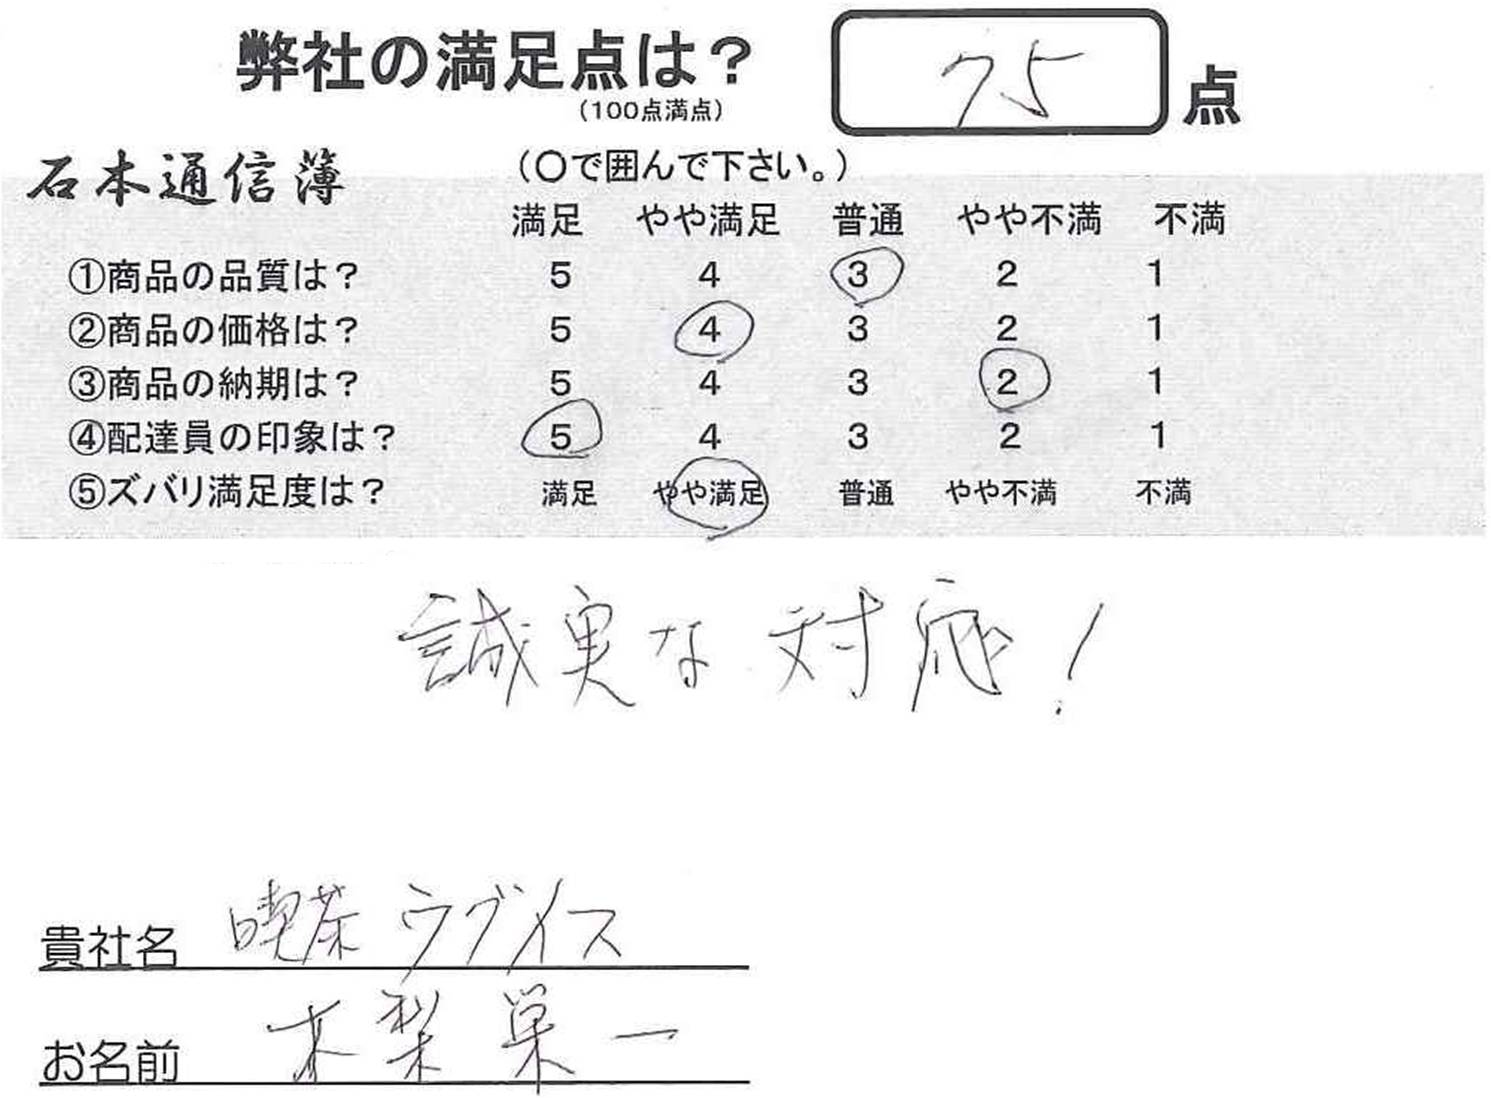 弊社の満足点は？ 75 点
（100点満点）
石本通信簿 （〇で囲んで下さい。）
満足 やや満足 普通 やや不満 不満
①商品の品質は？ 5 4 3 2 1
②商品の価格は？ 5 4 3 2 1
③商品の納期は？ 5 4 3 2 1
④配達員の印象は？ 5 4 3 2 1
⑤ズバリ満足度は？ 満足 やや満足 普通 やや不満 不満
誠実な対応！
貴社名 喫茶ウグイス
お名前 木梨巣一